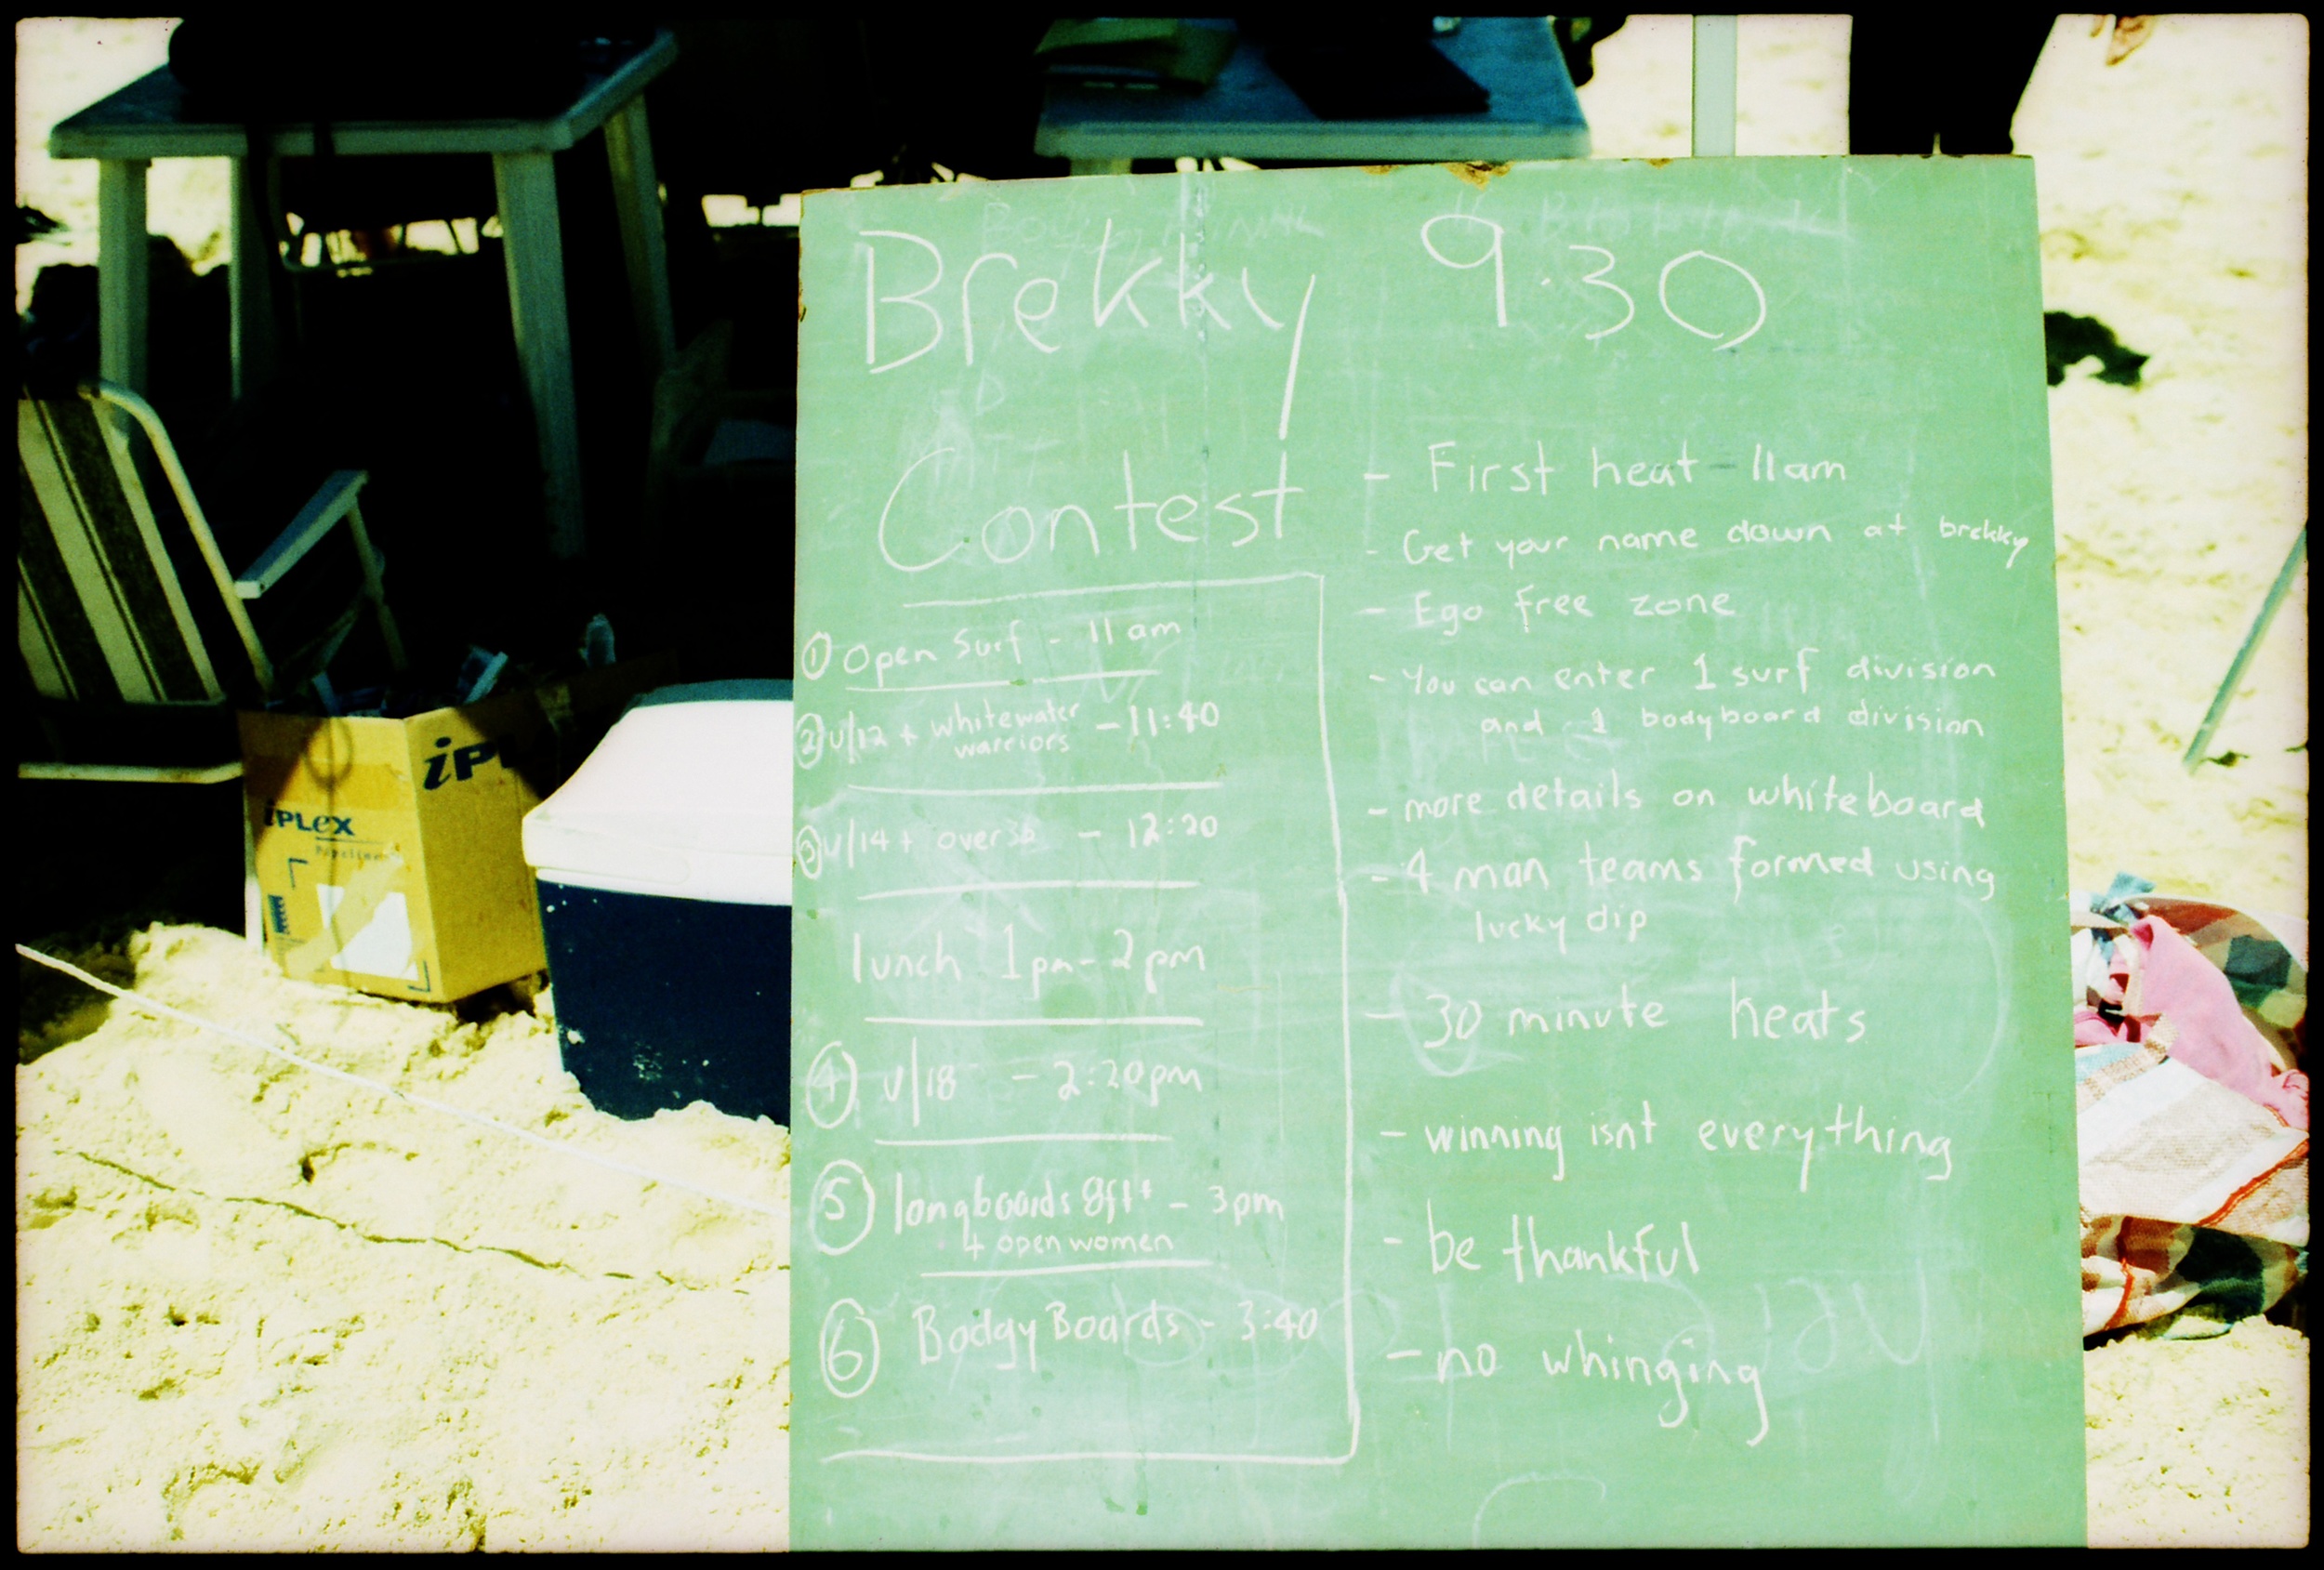 Brekky 9.30
Contest
① Open Surf - 11am
② U/12 + whitewater
warriors - 11:40
③ U/14 + over 32 - 12:20
lunch 1pm - 2pm
④ U/18 - 2:20pm
⑤ longboards 8ft+ - 3pm
+ open women
⑥ Bodgy Boards - 3:40
- First heat - 11am
- Get your name down at brekky
- Ego free zone
- You can enter 1 surf division
and 1 bodyboard division
- more details on whiteboard
- 4 man teams formed using
lucky dip
- 30 minute heats
- winning isnt everything
- be thankful
- no whinging
iPLEX
Pipelines